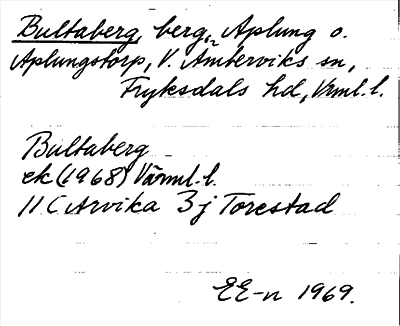 Bultaberg, berg, Aplung o.
Aplungstorp, V. Ämterviks sn,
Fryksdals hd, Vrml. l.
Bultaberg
ek (1968) Värml. l.
11 C Arvika 3 j Torestad
EE-n 1969.